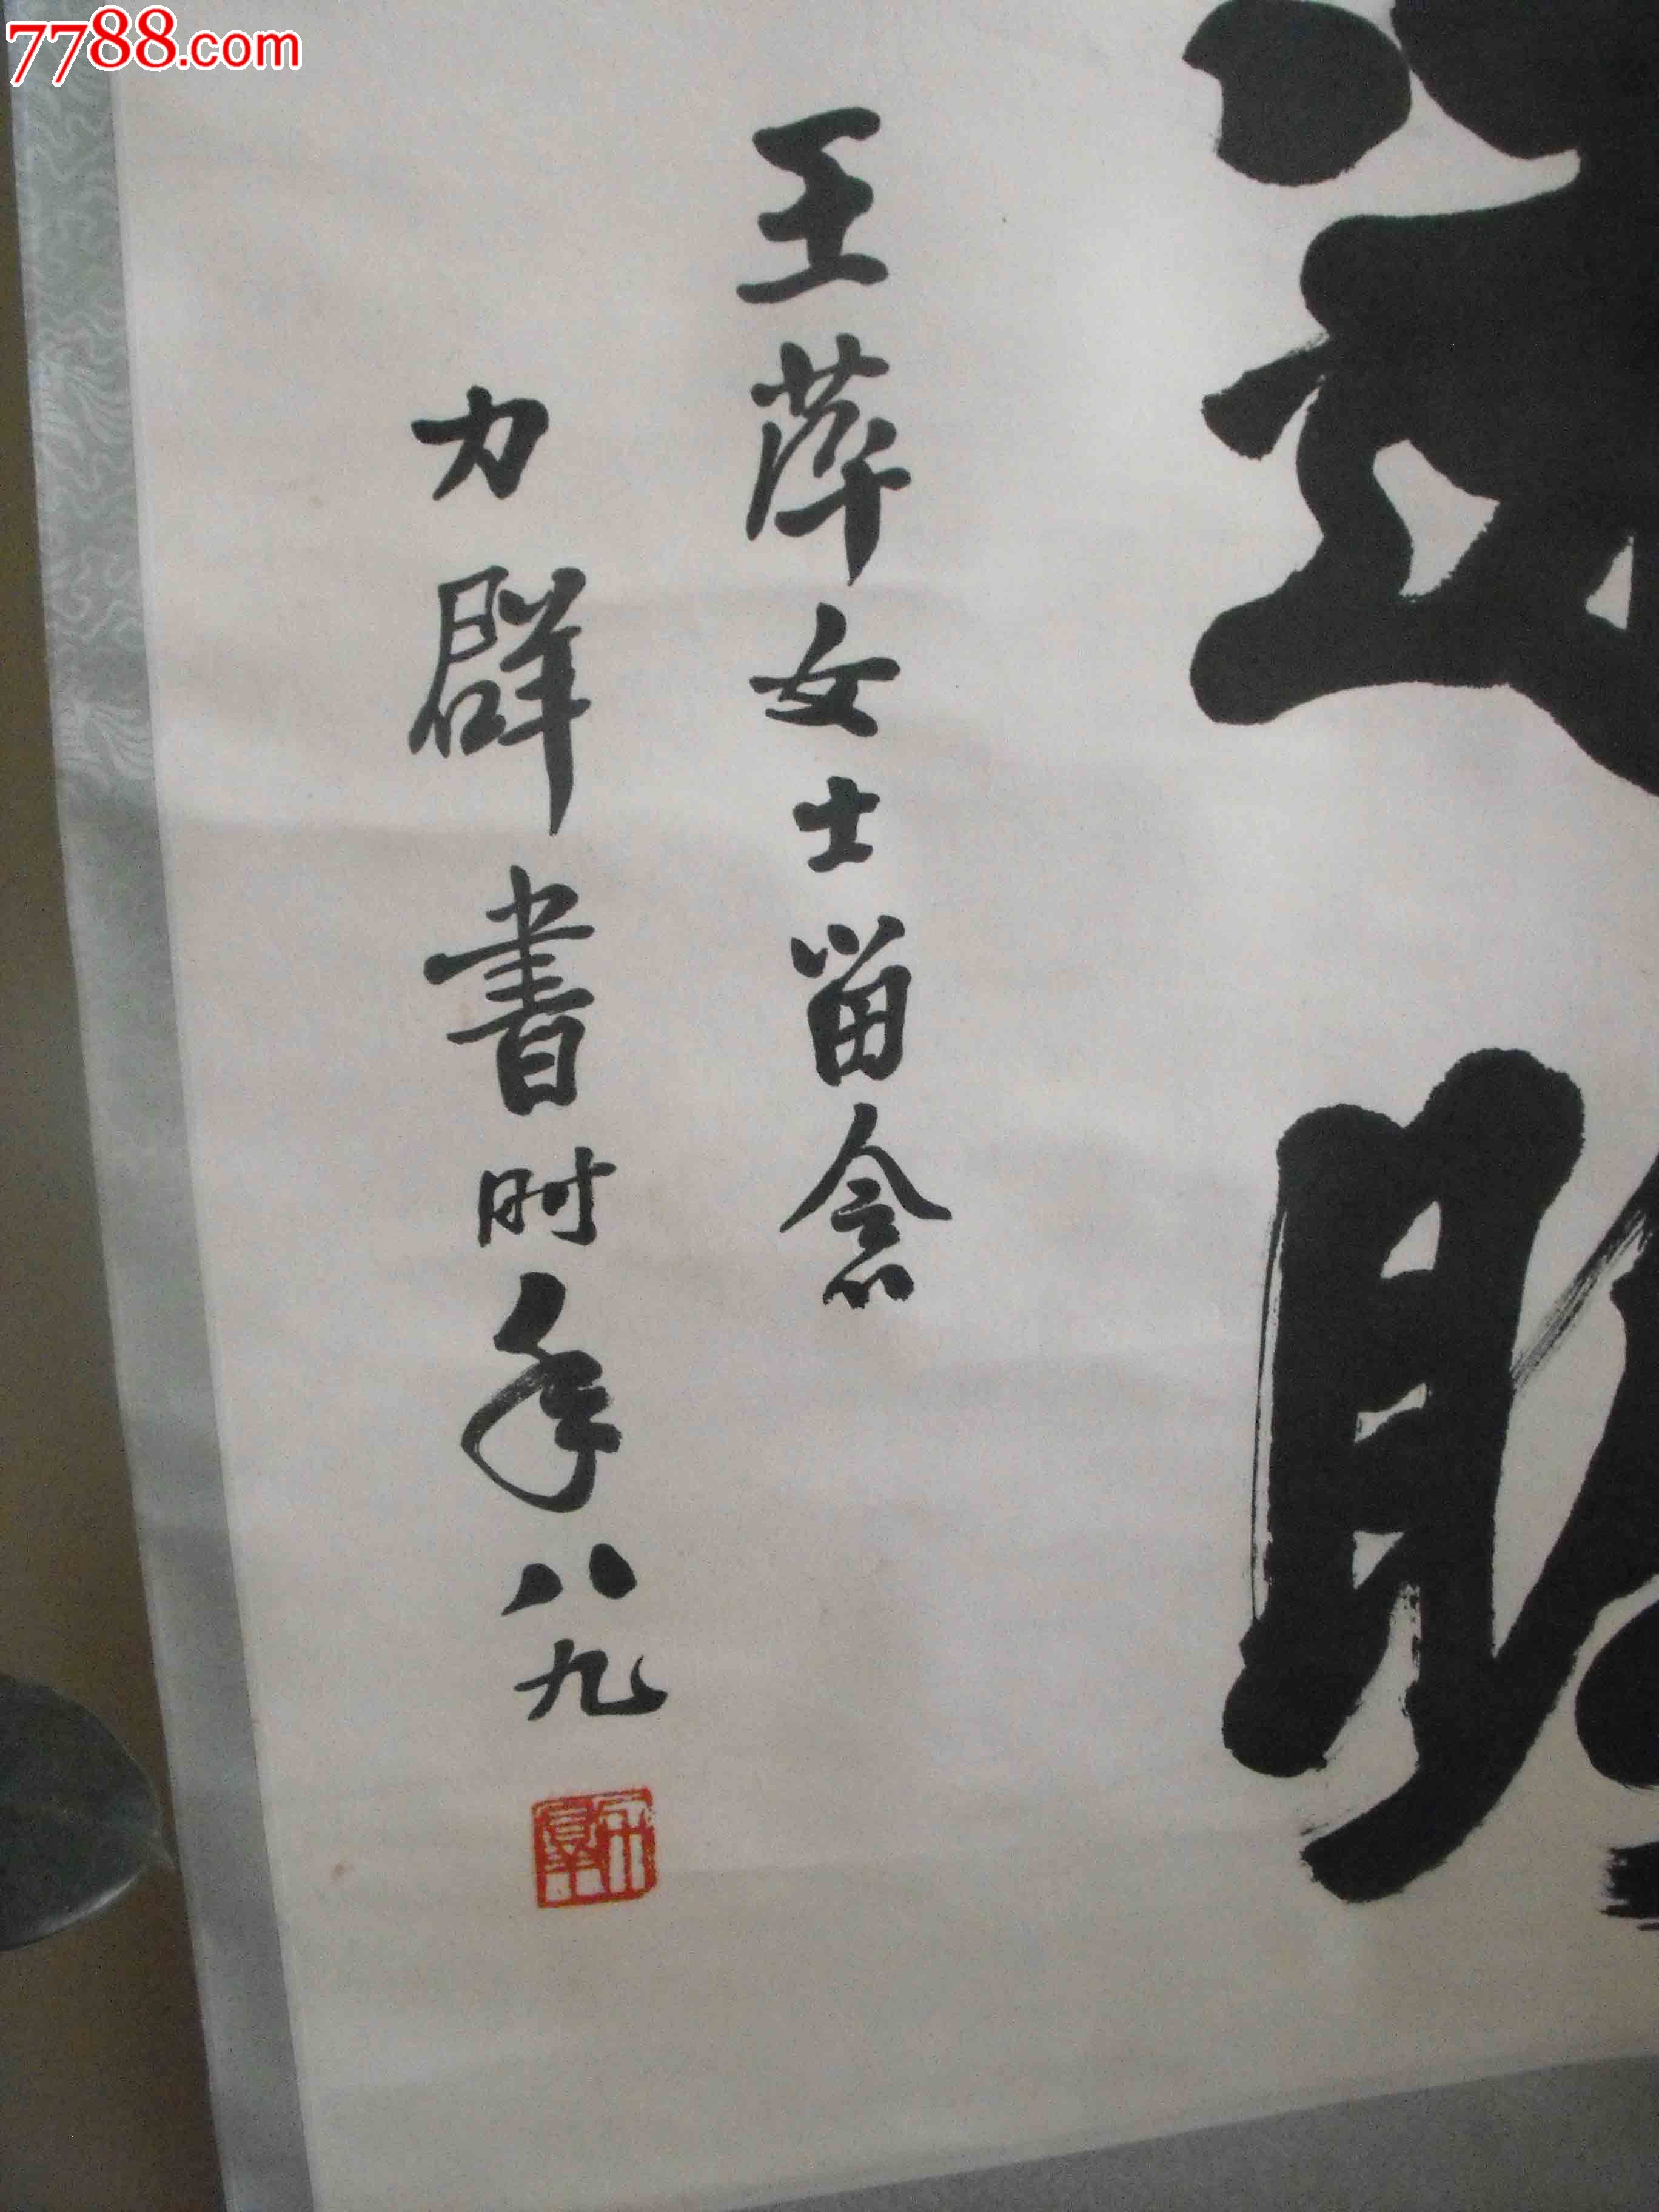 7788.com
王萍女士留念
力群書时年八九